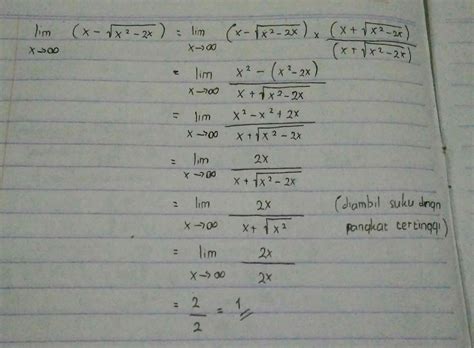 lim x→∞ (x - √(x² - 2x)) = lim x→∞ (x - √(x² - 2x)) × (x + √(x² - 2x)) / (x + √(x² - 2x))
= lim x→∞ x² - (x² - 2x) / x + √(x² - 2x)
= lim x→∞ x² - x² + 2x / x + √(x² - 2x)
= lim x→∞ 2x / x + √(x² - 2x)
= lim x→∞ 2x / x + √x² (diambil suku dngn pangkat tertinggi)
= lim x→∞ 2x / 2x
= 2/2 = 1